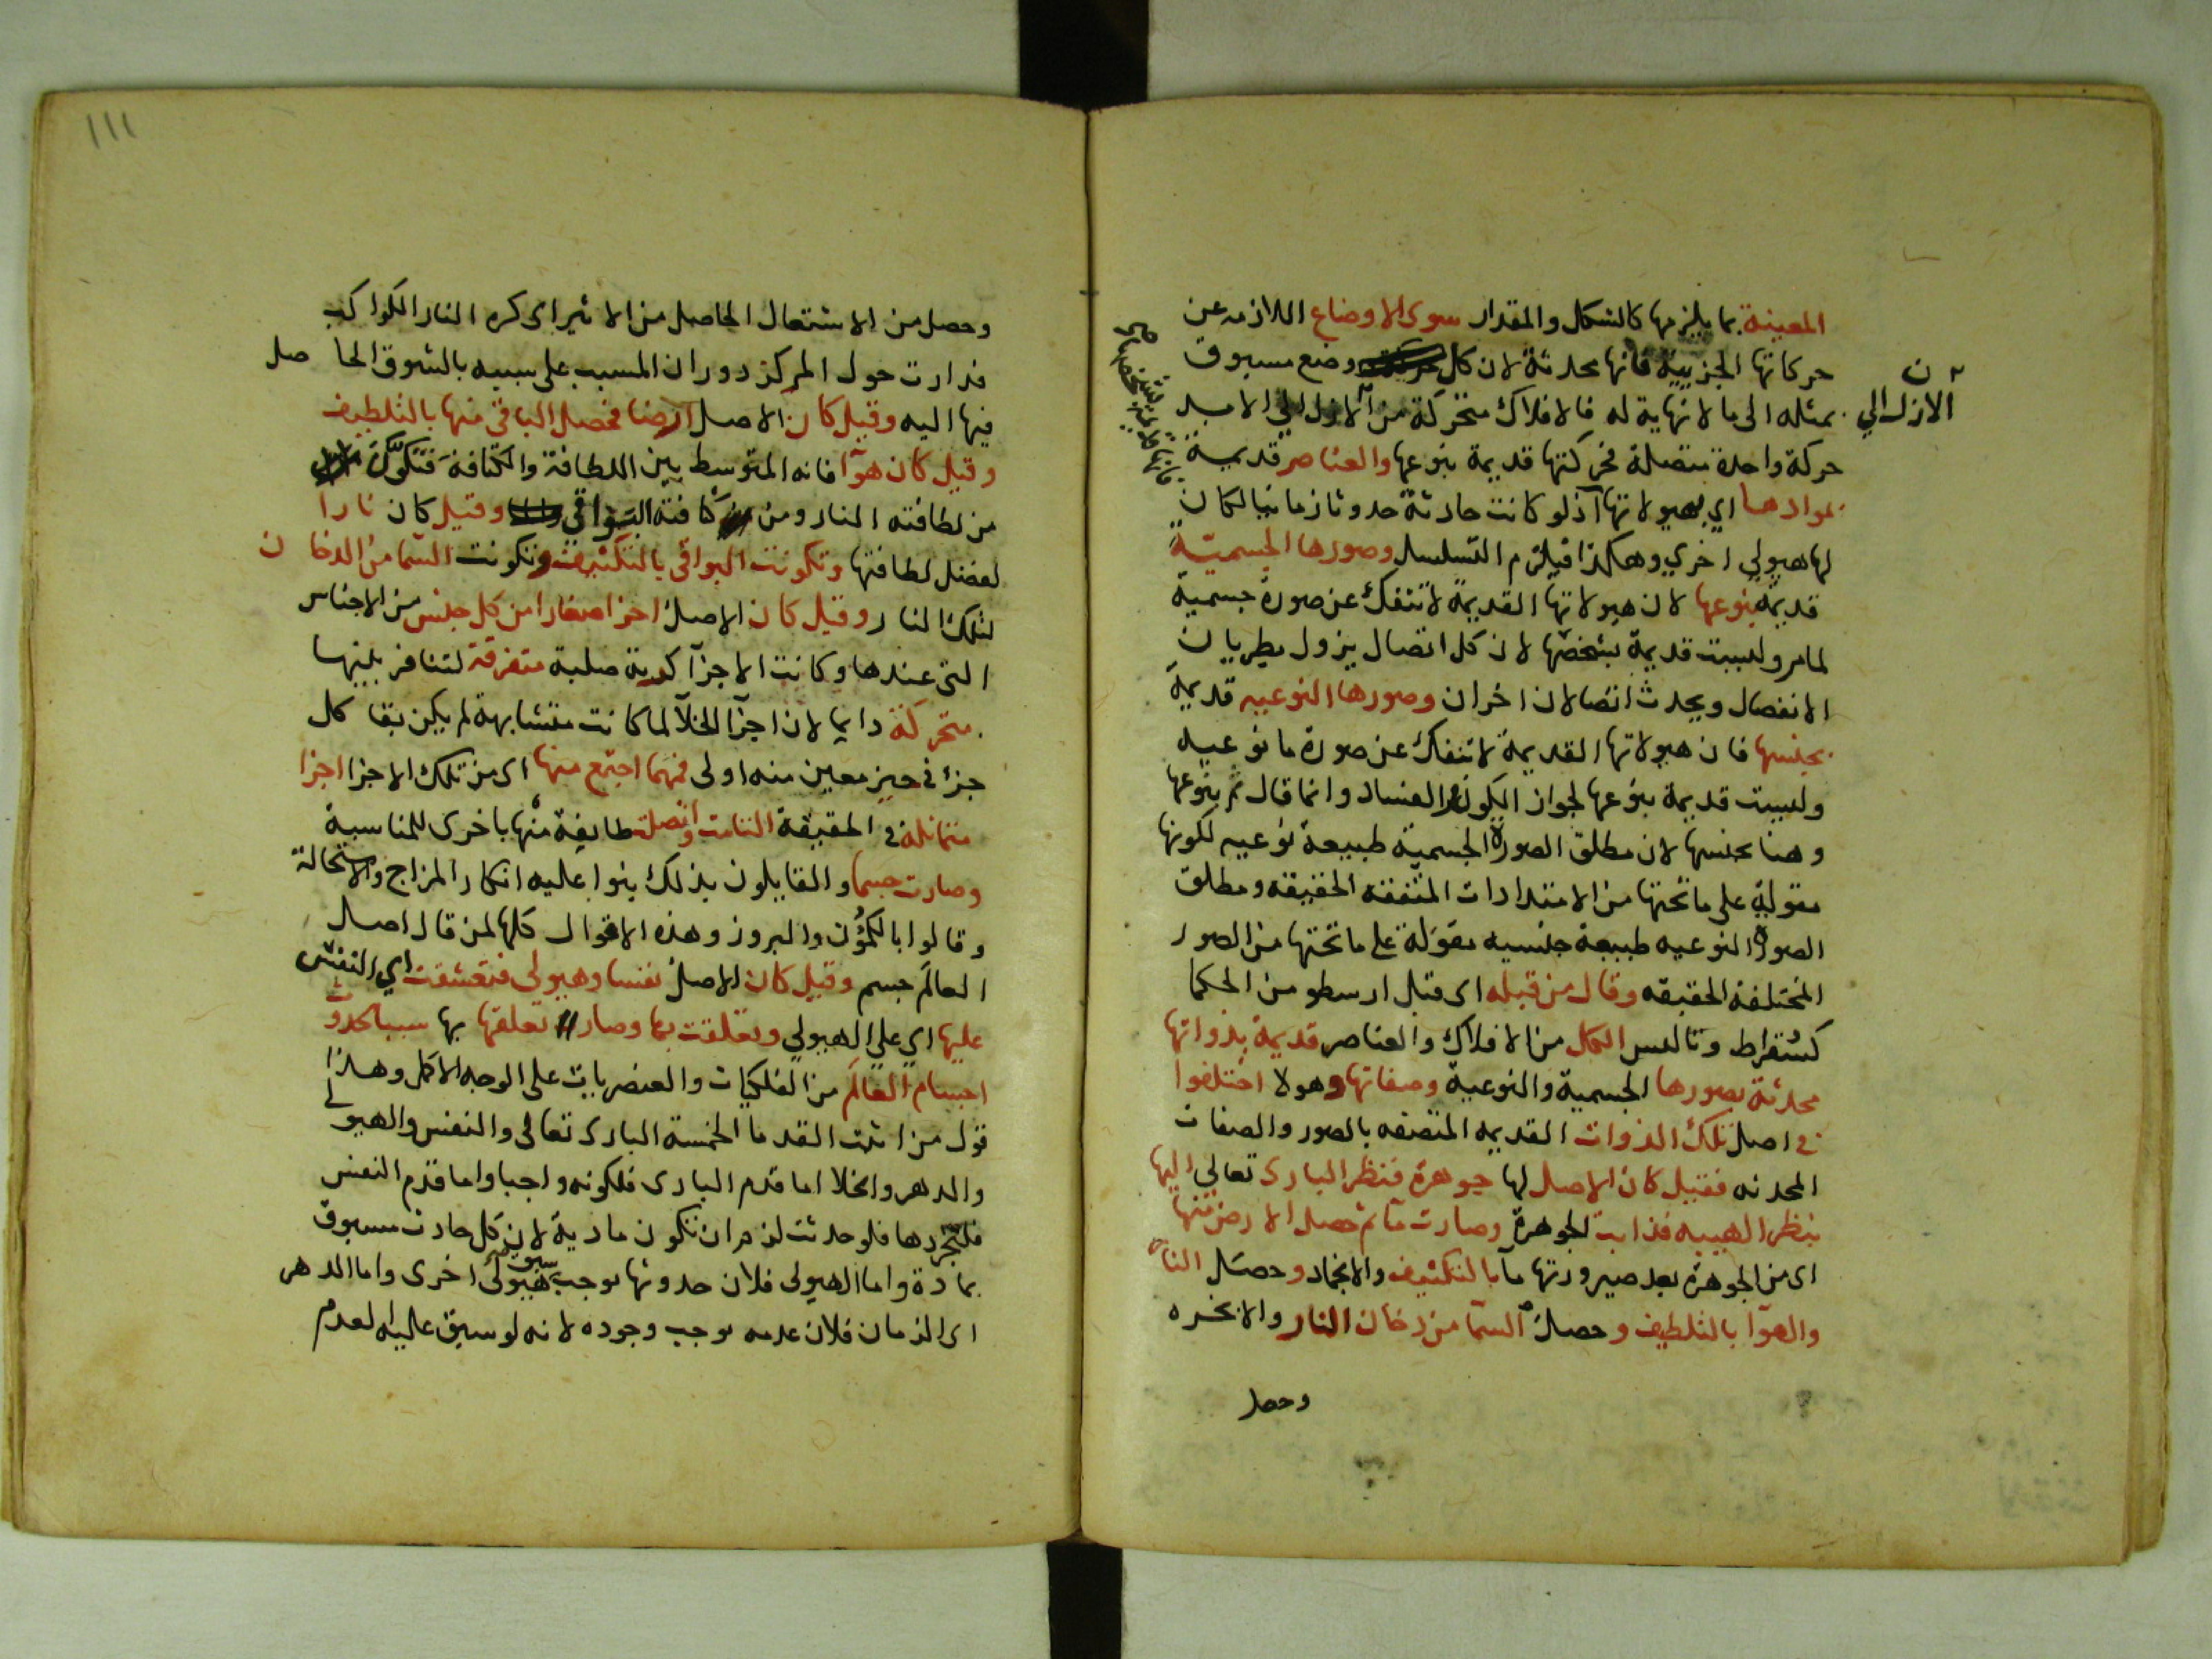 المعينة بما يلزمها كالشكل والمقدار سوى الاوضاع اللازمه عن
حركاتها الجزييه فانها محدثة لان كل وضع مسبوق
ن
الازل الي
بمثله الى ما لا نهاية له فالافلاك متحركة من الازل الي الابد
حركة واحدة متصلة فحركتها قديمة بنوعها والعناصر قديمة
بموادها اي بهيولاتها اذ لو كانت حادثة حدوثا زمانيا لكان
لها هيولي اخري وهكذا فيلزم التسلسل وصورها الجسمية
قديمة بنوعها لان هيولاتها القديمة لا تنفك عن صورة جسمية
لما مر وليست قديمة بشخصها لان كل اتصال يزول بطريان
الانفصال ويحدث اتصالان اخران وصورها النوعيه قديمة
بجنسها فان هيولاتها القديمة لا تنفك عن صورة ما نوعيه
وليست قديمة بنوعها لجواز الكون والفساد وانما قال ثم بنوعها
وهنا بجنسها لان مطلق الصورة الجسمية طبيعة نوعيه لكونها
مقولة على ما تحتها من الامتدادات المتفقه الحقيقه ومطلق
الصورة النوعيه طبيعة جنسيه مقولة على ما تحتها من الصور
المختلفة الحقيقه وقال من قبله اى قبل ارسطو من الحكما
كسقراط وثاليس الكل من الافلاك والعناصر قديمة بذواتها
محدثة بصورها الجسمية والنوعية وصفاتها وهولا اختلفوا
في اصل تلك الذوات القديمه المتصفه بالصور والصفات
المحدثه فقيل كان الاصل لها جوهرة فنظر البارى تعالي اليها
بنظر الهيبه فذابت الجوهرة وصارت مآ ثم حصل الارض منها
اى من الجوهرة بعد صيرورتها مآ بالتكثيف والانجماد وحصل النار
والهوآ بالتلطيف وحصل السما من دخان النار والابخره
وحصل
١١١
وحصل من الاشتعال الحاصل من الاثير اى كره النار الكواكب
فدارت حول المركز دوران المسبب على سببه بالشوق الحاصل
فيها اليه وقيل كان الاصل ارضا فحصل الباقي منها بالتلطيف
وقيل كان هوآ فانه المتوسط بين اللطافة والكثافة فتكون
من لطافته النار ومن كثافته البواقي وقيل كان نارا
لفضل لطافتها وتكونت البواقى بالتكثيف وتكونت السما من الدخان
لتلك النار وقيل كان الاصل اجزا صغارا من كل جنس من الاجناس
التى عندها وكانت الاجزآ كرية صلبة متفرقة لتنافر بينها
متحركة دايما لان اجزآ الخلآ لما كانت متشابهة لم يكن بقا كل
جزء في حيز معين منه اولى فمهما اجتمع منها اى من تلك الاجزا اجزا
متماثلة في الحقيقة التامت واتصلت طايفة منها باخرى للمناسبة
وصارت جسما والقايلون بذلك بنوا عليه انكار المزاج والاستحالة
وقالوا بالكمون والبروز وهذه الاقوال كلها لمن قال اصل
العالم جسم وقيل كان الاصل نفسا وهيولى فتعشقت اي النفس
عليها اي على الهيولي وتعلقت بها وصار تعلقها بها سببا لحدوث
اجسام العالم من الفلكيات والعنصريات على الوجه الاكمل وهذا
قول من اثبت القدما الخمسة البارى تعالى والنفس والهيولى
والدهر والخلا اما قدم البارى فلكونه واجبا واما قدم النفس
فلتجردها فلو حدثت لزم ان تكون مادية لان كل حادث مسبوق
بمادة واما الهيولى فلان حدوثها يوجب سبق هيولى اخرى واما الدهر
اى الزمان فلان عدمه يوجب وجوده لانه لو سبق عليه العدم